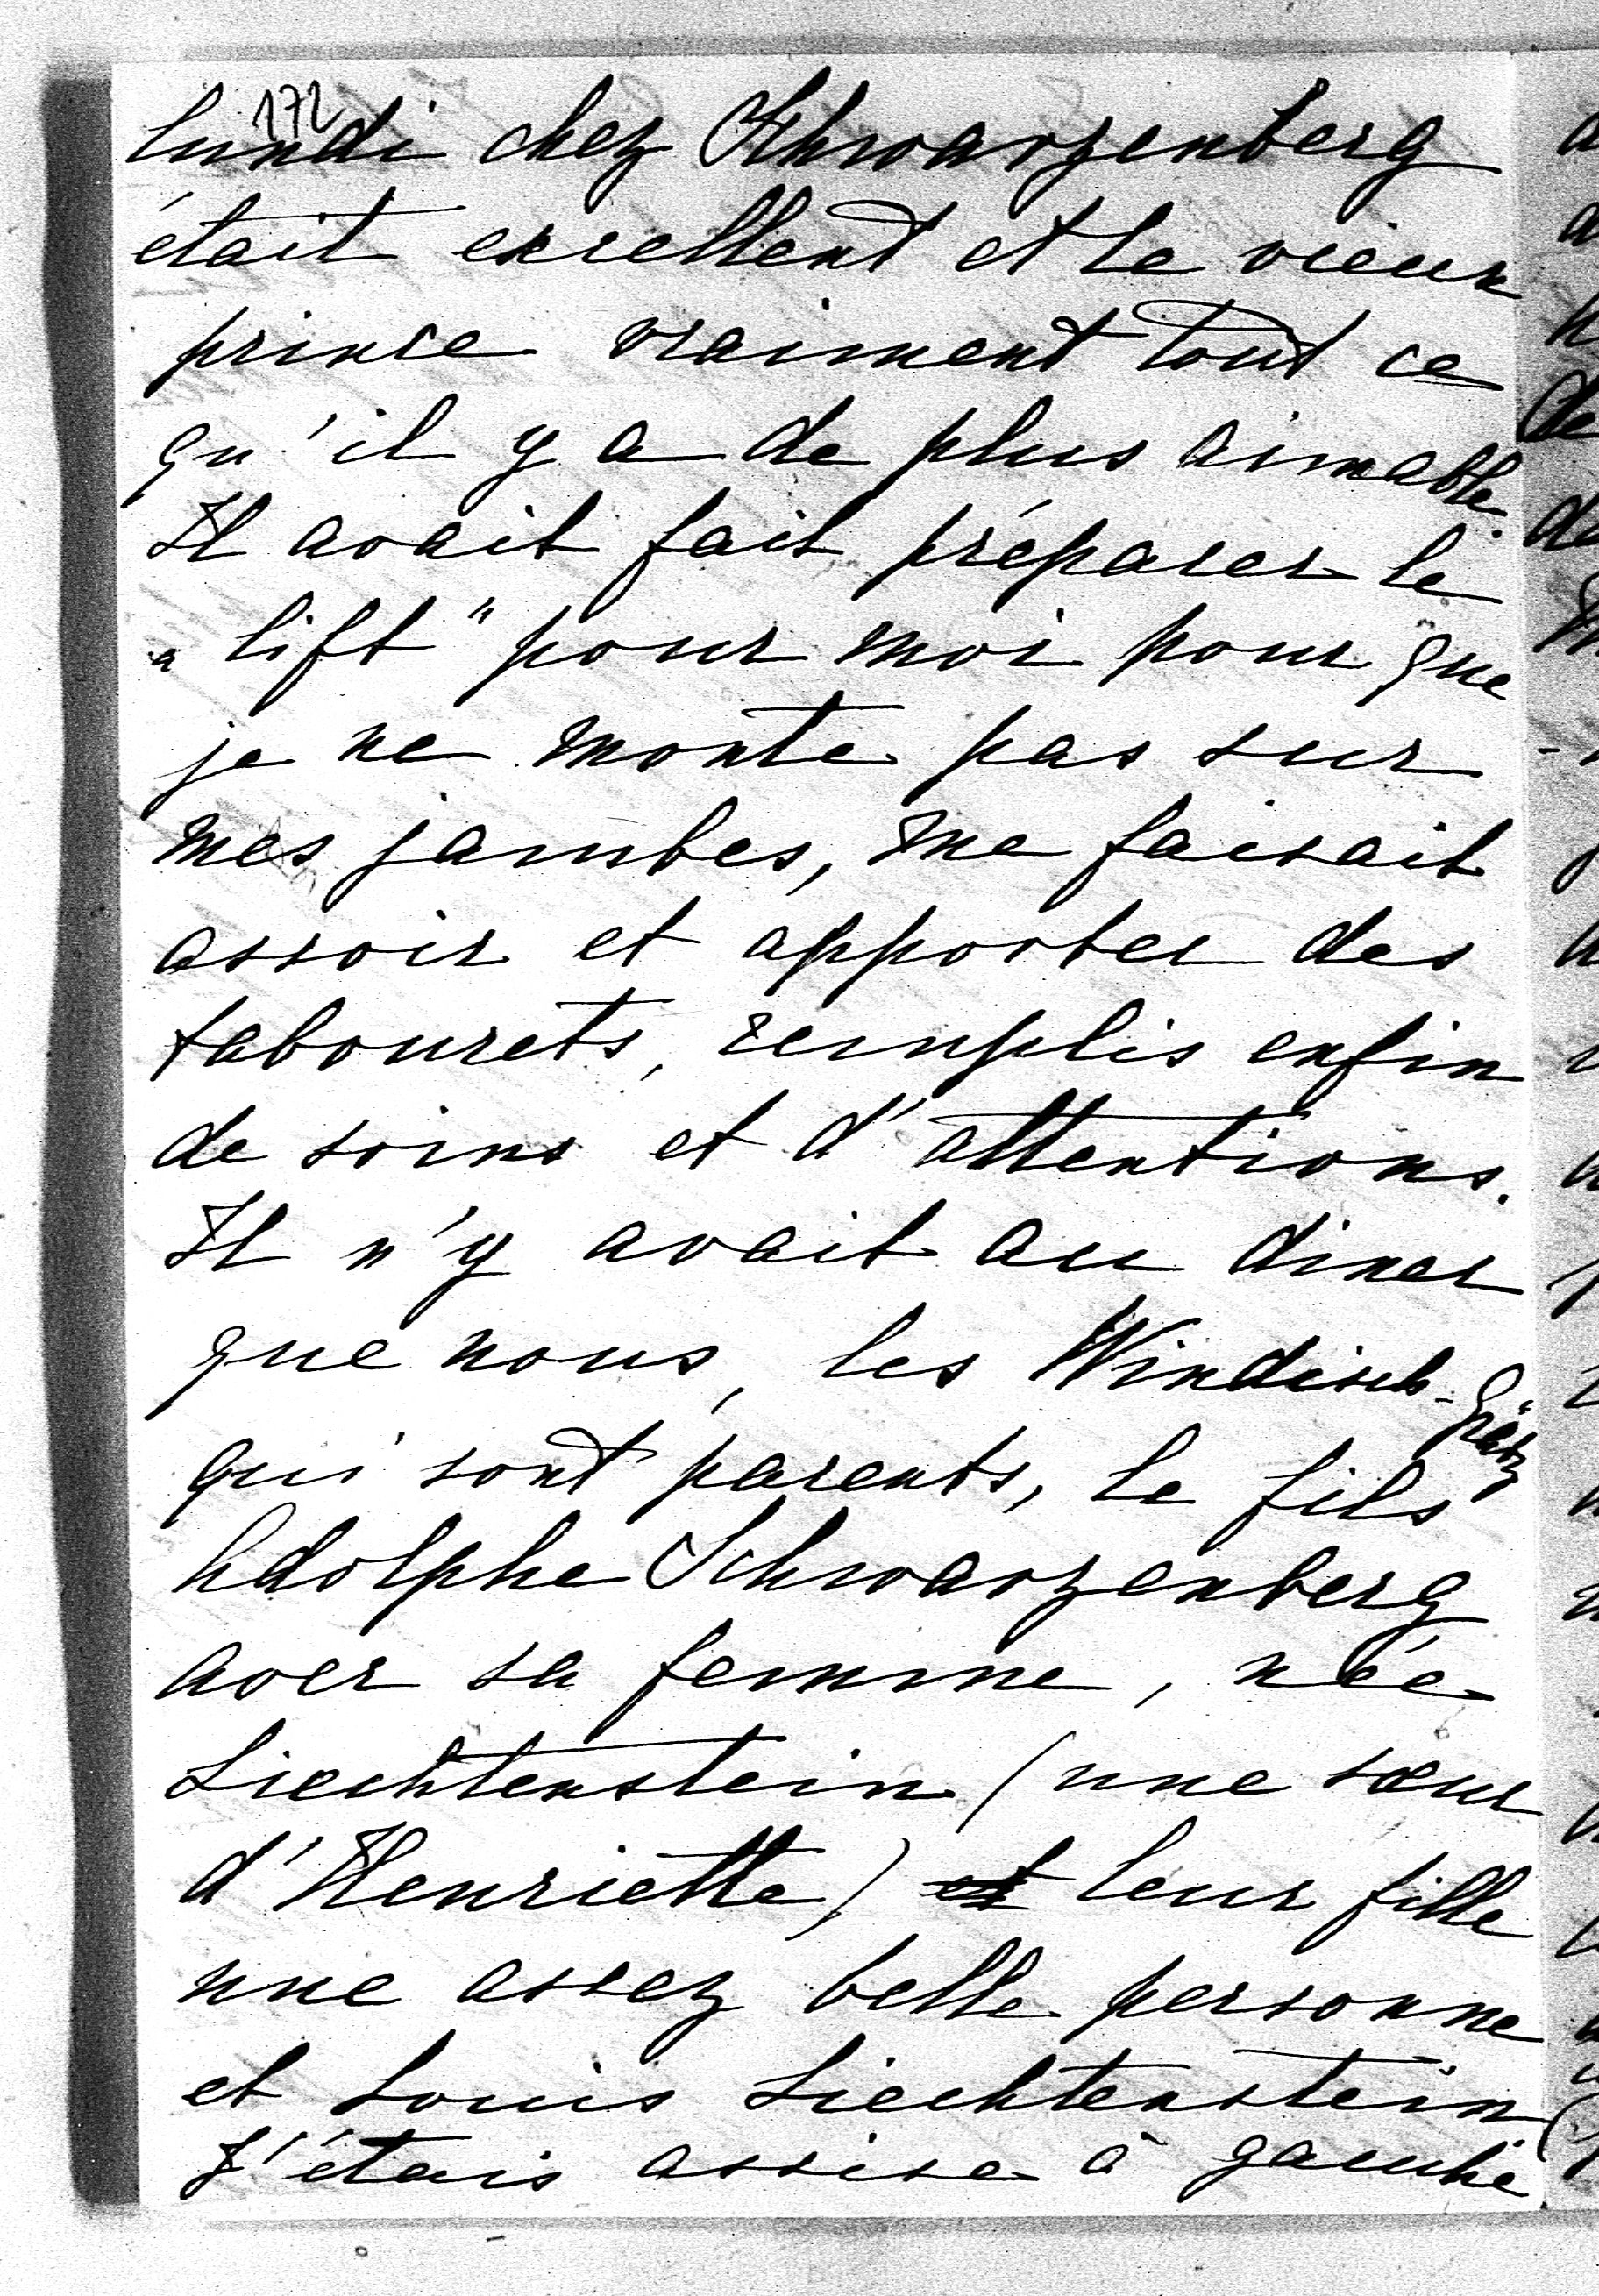 172
lundi chez Schwarzenberg
était excellent et le vieux
prince vraiment tout ce
qu'il y a de plus aimable.
Il avait fait préparer le
"lift" pour moi pour que
je ne monte pas sur
mes jambes, me faisait
assoir et apporter des
tabourets, remplis enfin
de soins et d'attentions.
Il n'y avait au diner
que nous, les Windisch-Grätz
qui sont parents, le fils
Adolphe Schwarzenberg
avec sa femme, née
Liechtenstein (une sœur
d'Henriette) et leur fille
une assez belle personne
et Louis Liechtenstein
J'étais assise à gauche